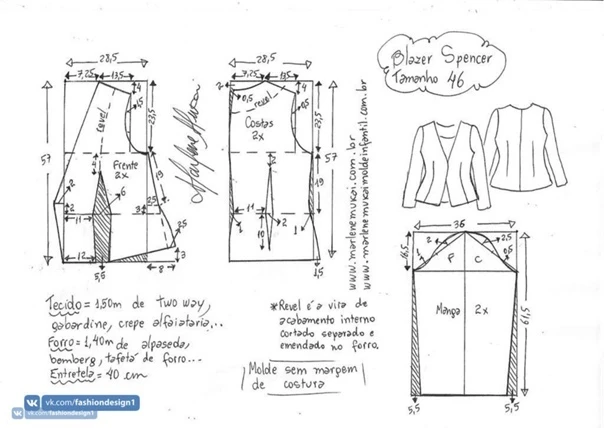 Blazer Spencer
Tamanho 46
28,5
7,25
13,5
4
1,5
revel
23,5
57
Frente
2x
2
6
19
2
2
11
3
2,5
12
5,5
2,5
3
8
Marlene Mukai
28,5
7,25
13,5
2
0,5
revel
4
Costas
2x
23,5
57
2
19
11
2
1
10
1
1,5
www.marlenemukai.com.br
www.marlenemukaimoldeinfantil.com.br
36
16,5
2
2,5
1
0,5
F
C
Manga
2x
61,5
5,5
5,5
Tecido = 1,50m de two way,
gabardine, crepe alfaiataria...
Forro = 1,40m de alpaseda,
bemberg, tafetá de forro...
Entretela = 40 cm
*Revel é a vira de
acabamento interno
cortado separado e
emendado no forro.
Molde sem margem
de costura
vk.com/fashiondesign1
vk.com/fashiondesign1